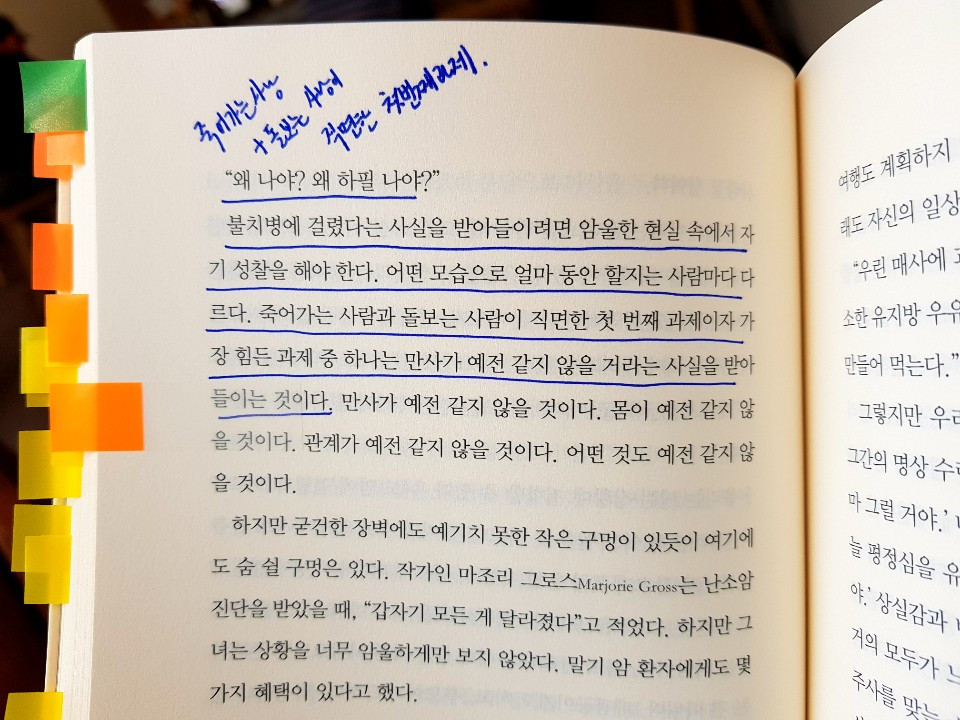 죽어가는 사람
+ 돌보는 사람이
직면한 첫번째 과제.
“왜 나야? 왜 하필 나야?”
불치병에 걸렸다는 사실을 받아들이려면 암울한 현실 속에서 자
기 성찰을 해야 한다. 어떤 모습으로 얼마 동안 할지는 사람마다 다
르다. 죽어가는 사람과 돌보는 사람이 직면한 첫 번째 과제이자 가
장 힘든 과제 중 하나는 만사가 예전 같지 않을 거라는 사실을 받아
들이는 것이다. 만사가 예전 같지 않을 것이다. 몸이 예전 같지 않
을 것이다. 관계가 예전 같지 않을 것이다. 어떤 것도 예전 같지 않
을 것이다.
하지만 굳건한 장벽에도 예기치 못한 작은 구멍이 있듯이 여기에
도 숨 쉴 구멍은 있다. 작가인 마조리 그로스Marjorie Gross는 난소암
진단을 받았을 때, “갑자기 모든 게 달라졌다”고 적었다. 하지만 그
녀는 상황을 너무 암울하게만 보지 않았다. 말기 암 환자에게도 몇
가지 혜택이 있다고 했다.
여행도 계획하지
태도 자신의 일상
“우린 매사에
소한 유지방 우유
만들어 먹는다.”
그렇지만 우리
그간의 명상 수
마 그럴 거야.’
늘 평정심을 유
야.’ 상실감과
거의 모두가
주사를 맞는